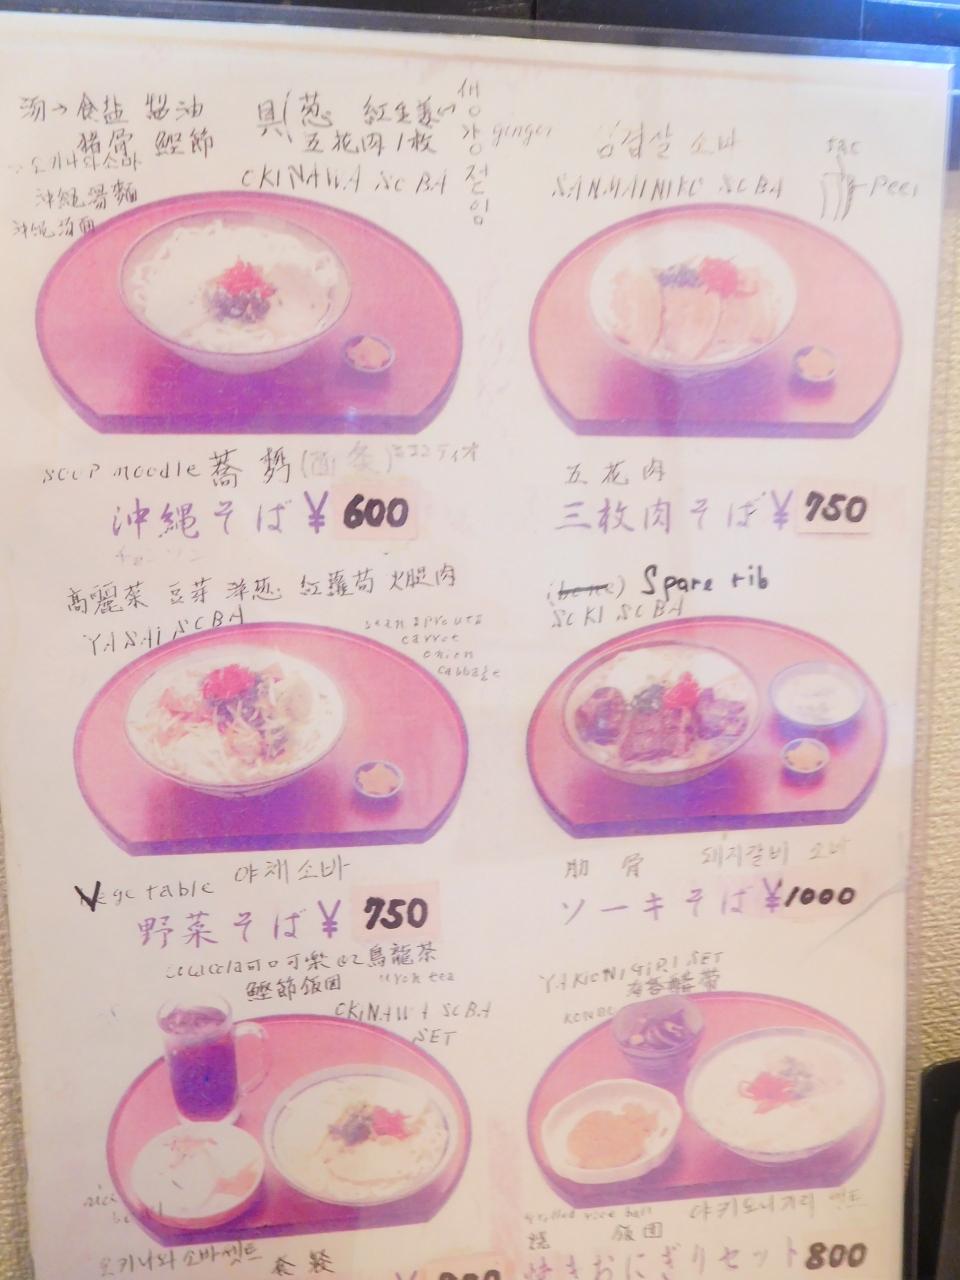 湯→食塩 醤油
猪骨 鰹節
具(葱 紅生姜
五花肉1枚
생강절임
ginger
오키나와소바
沖縄湯麺
OKINAWA SOBA
삼겹살 소바
SANMAINIKU SOBA
soup noodle 蕎麺
沖縄そば¥600
五花肉
三枚肉そば¥750
高麗菜 豆芽 洋葱 紅蘿蔔 火腿肉
YASAI SOBA
bean sprouts
carrot
onion
cabbage
Spare rib
SOKI SOBA
Vegetable 야채소바
野菜そば¥750
肋骨 돼지갈비 소바
ソーキそば¥1000
可口可樂 or 烏龍茶
鰹節飯団
OKINAWA SOBA
SET
YAKIONIGIRI SET
rice
오키나와 소바셋트 套餐
grilled rice ball 야키오니기리 셋트
焼 飯団
焼きおにぎりセット800